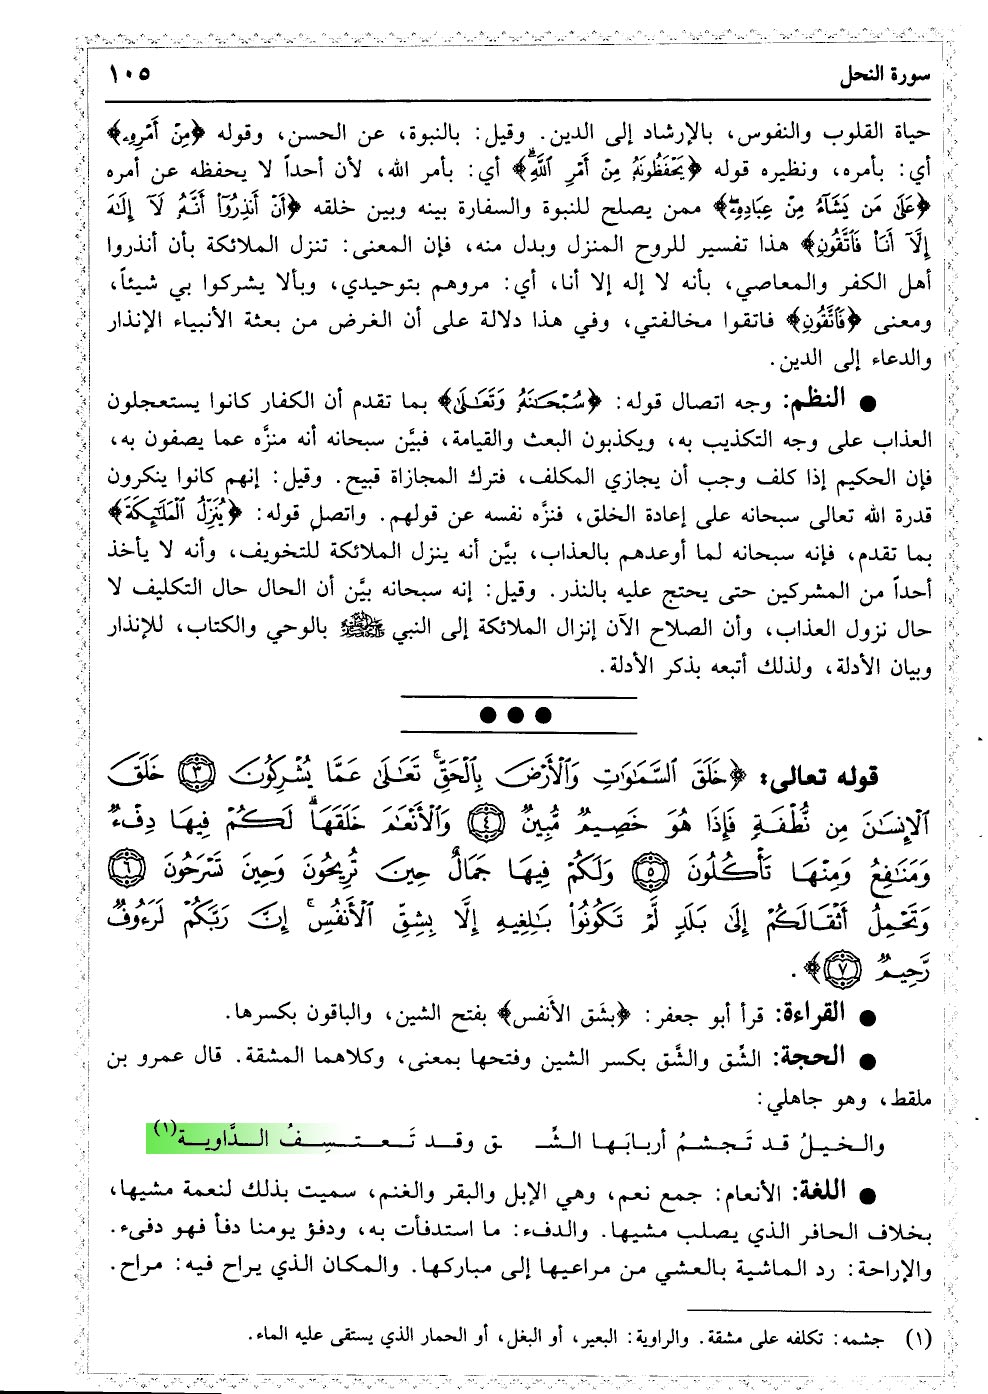 سورة النحل ١٠٥
حياة القلوب والنفوس، بالإرشاد إلى الدين. وقيل: بالنبوة، عن الحسن، وقوله ﴿مِنْ أَمْرِهِۦ﴾
أي: بأمره، ونظيره قوله ﴿يَحْفَظُونَهُۥ مِنْ أَمْرِ ٱللَّهِۗ﴾ أي: بأمر الله، لأن أحداً لا يحفظه عن أمره
﴿عَلَىٰ مَن يَشَآءُ مِنْ عِبَادِهِۦٓ﴾ ممن يصلح للنبوة والسفارة بينه وبين خلقه ﴿أَنْ أَنذِرُوٓا۟ أَنَّهُۥ لَآ إِلَٰهَ
إِلَّآ أَنَا۠ فَٱتَّقُونِ﴾ هذا تفسير للروح المنزل وبدل منه، فإن المعنى: تنزل الملائكة بأن أنذروا
أهل الكفر والمعاصي، بأنه لا إله إلا أنا، أي: مروهم بتوحيدي، وبألا يشركوا بي شيئاً،
ومعنى ﴿فَٱتَّقُونِ﴾ فاتقوا مخالفتي، وفي هذا دلالة على أن الغرض من بعثة الأنبياء الإنذار
والدعاء إلى الدين.
● النظم: وجه اتصال قوله: ﴿سُبْحَٰنَهُۥ وَتَعَٰلَىٰ﴾ بما تقدم أن الكفار كانوا يستعجلون
العذاب على وجه التكذيب به، ويكذبون البعث والقيامة، فبيَّن سبحانه أنه منزَّه عما يصفون به،
فإن الحكيم إذا كلف وجب أن يجازي المكلف، فترك المجازاة قبيح. وقيل: إنهم كانوا ينكرون
قدرة الله تعالى سبحانه على إعادة الخلق، فنزَّه نفسه عن قولهم. واتصل قوله: ﴿يُنَزِّلُ ٱلْمَلَٰٓئِكَةَ﴾
بما تقدم، فإنه سبحانه لما أوعدهم بالعذاب، بيَّن أنه ينزل الملائكة للتخويف، وأنه لا يأخذ
أحداً من المشركين حتى يحتج عليه بالنذر. وقيل: إنه سبحانه بيَّن أن الحال حال التكليف لا
حال نزول العذاب، وأن الصلاح الآن إنزال الملائكة إلى النبي ﷺ بالوحي والكتاب، للإنذار
وبيان الأدلة، ولذلك أتبعه بذكر الأدلة.
● ● ●
قوله تعالى: ﴿خَلَقَ ٱلسَّمَٰوَٰتِ وَٱلْأَرْضَ بِٱلْحَقِّۚ تَعَٰلَىٰ عَمَّا يُشْرِكُونَ ٣ خَلَقَ
ٱلْإِنسَٰنَ مِن نُّطْفَةٍ فَإِذَا هُوَ خَصِيمٌ مُّبِينٌ ٤ وَٱلْأَنْعَٰمَ خَلَقَهَاۗ لَكُمْ فِيهَا دِفْءٌ
وَمَنَٰفِعُ وَمِنْهَا تَأْكُلُونَ ٥ وَلَكُمْ فِيهَا جَمَالٌ حِينَ تُرِيحُونَ وَحِينَ تَسْرَحُونَ ٦
وَتَحْمِلُ أَثْقَالَكُمْ إِلَىٰ بَلَدٍ لَّمْ تَكُونُوا۟ بَٰلِغِيهِ إِلَّا بِشِقِّ ٱلْأَنفُسِۚ إِنَّ رَبَّكُمْ لَرَءُوفٌ
رَّحِيمٌ ٧﴾.
● القراءة: قرأ أبو جعفر: ﴿بشَق الأنفس﴾ بفتح الشين، والباقون بكسرها.
● الحجة: الشِّق والشَّق بكسر الشين وفتحها بمعنى، وكلاهما المشقة. قال عمرو بن
ملقط، وهو جاهلي:
والخيلُ قد تَجشمُ أربابَها الشِّـ ـق وقد تَعتسِفُ الدَّاوية(١)
● اللغة: الأنعام: جمع نعم، وهي الإبل والبقر والغنم، سميت بذلك لنعمة مشيها،
بخلاف الحافر الذي يصلب مشيها. والدفء: ما استدفأت به، ودفؤ يومنا دفأ فهو دفيء.
والإراحة: رد الماشية بالعشي من مراعيها إلى مباركها. والمكان الذي يراح فيه: مراح.
(١) جشمه: تكلفه على مشقة. والراوية: البعير، أو البغل، أو الحمار الذي يستقى عليه الماء.